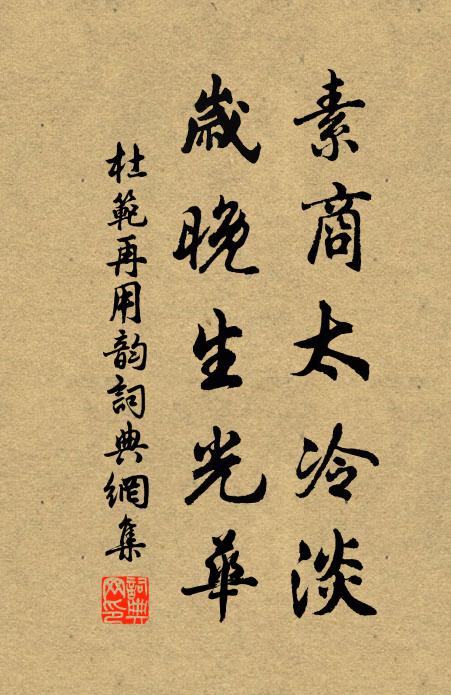 素商太冷淡
歲晚生光華
杜範再用韵詞典網集
詞典網印